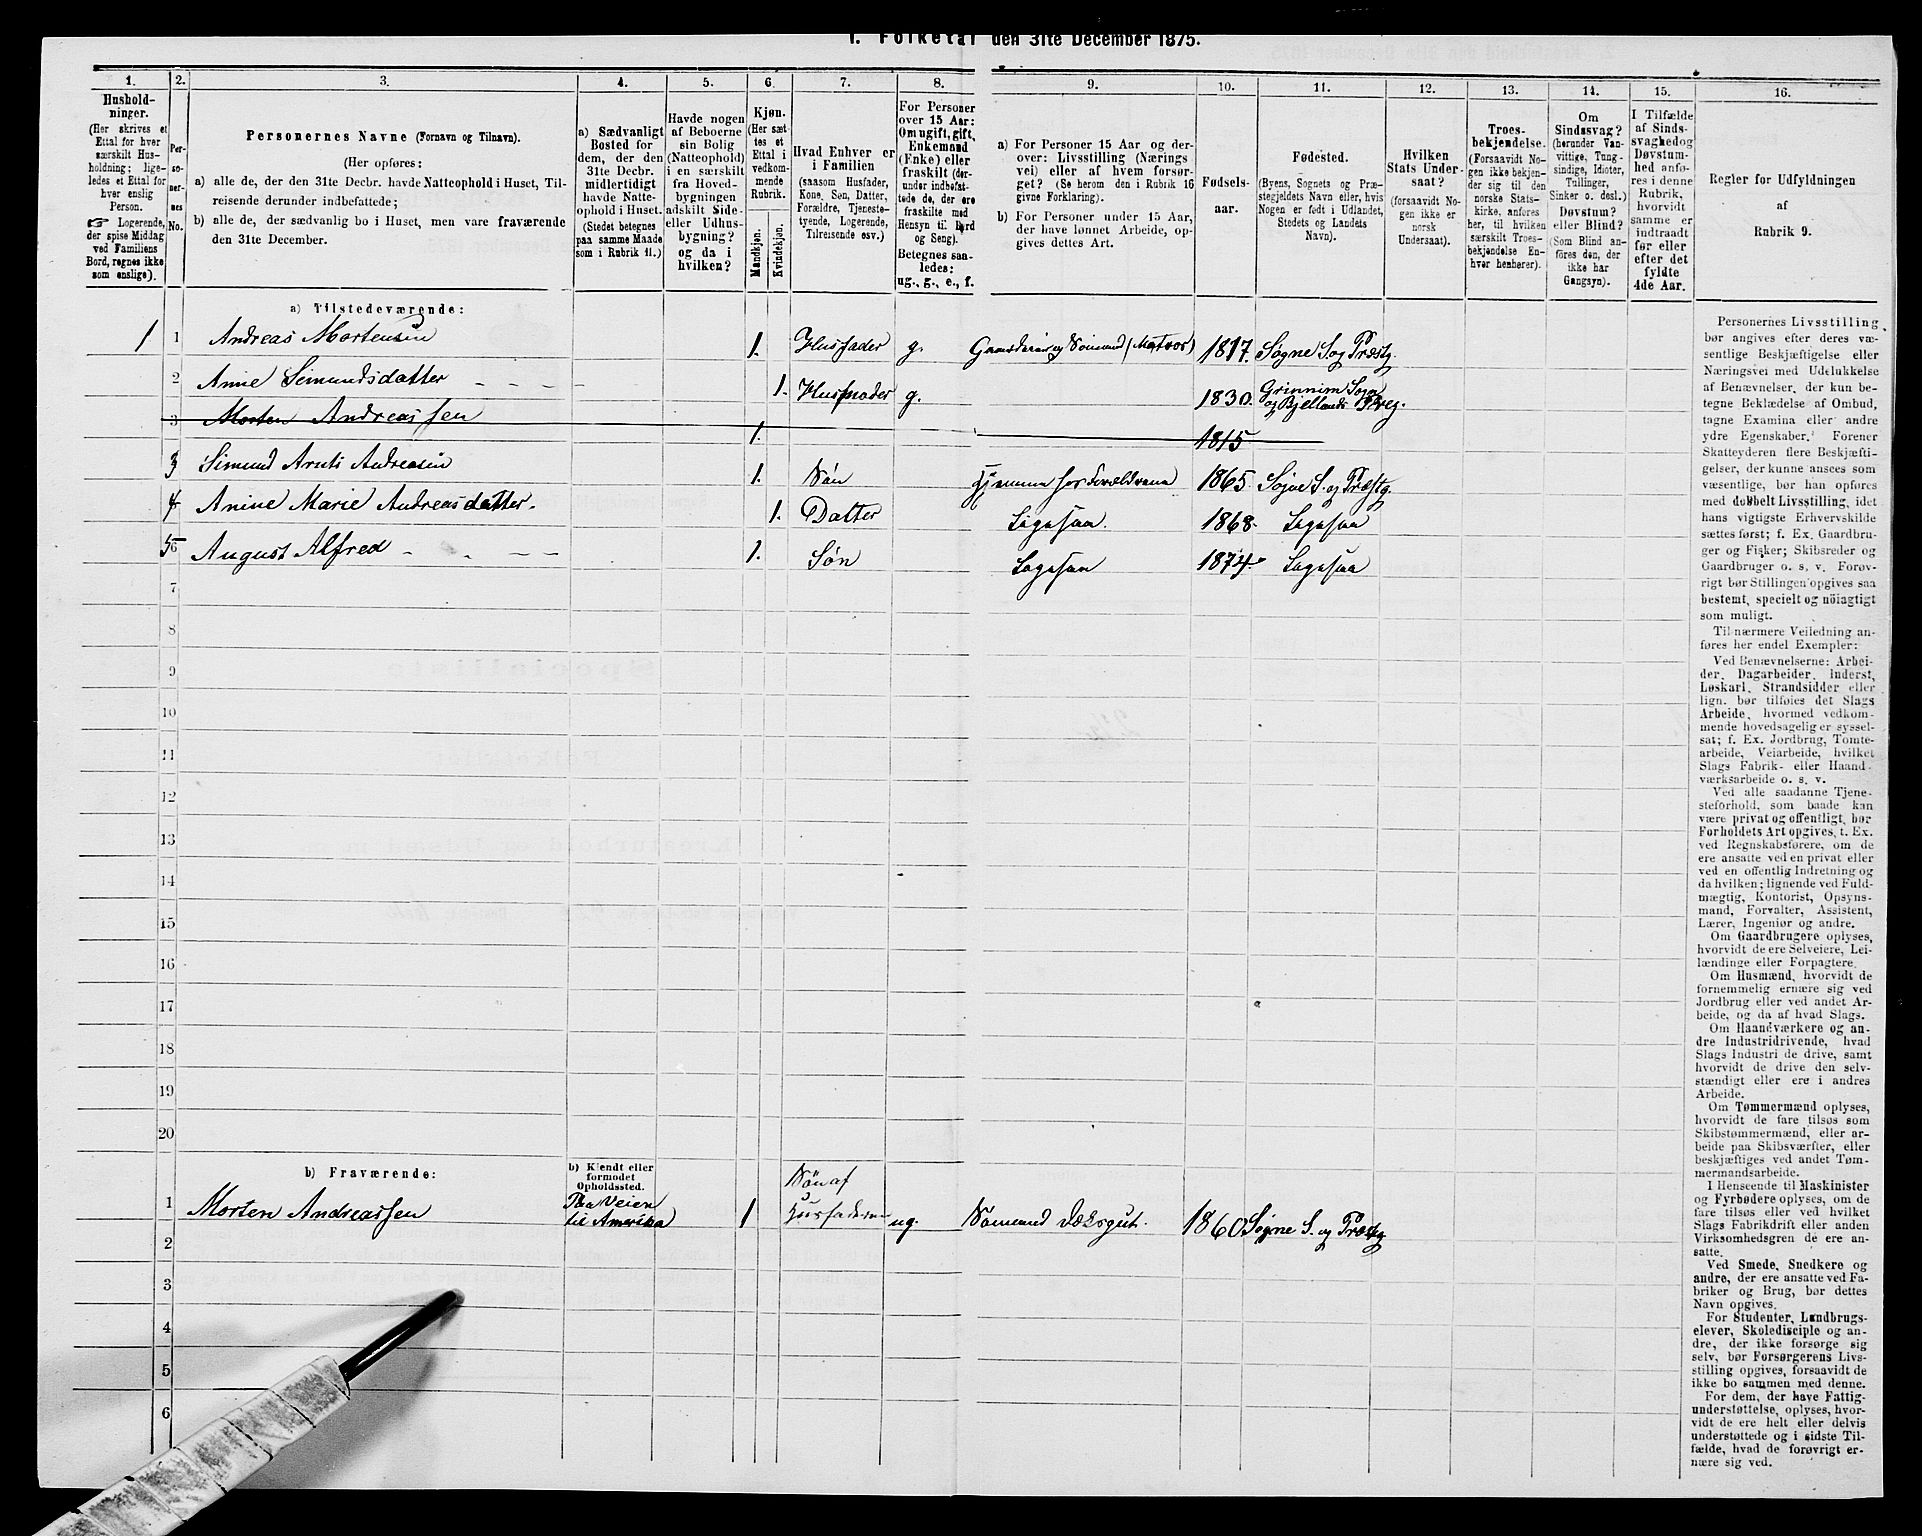 1. Folketal den 31te December 1875.
1. 2. 3. 4. 5. 6. 7. 8. 9. 10. 11. 12. 13. 14. 15. 16.
Hushold-
ninger.
(Her skrives et
Ettal for hver
særskilt Hus-
holdning; lige-
ledes et Ettal for
hver enslig
Person.
☞ Logerende,
der spise Middag
ved Familiens
Bord, regnes ikke
som enslige).
Per-
so-
ner-
nes
No.
Personernes Navne (Fornavn og Tilnavn).
(Her opføres:
a) alle de, der den 31te Decbr. havde Natteophold i Huset, Til-
reisende derunder indbefattede;
b) alle de, der sædvanlig bo i Huset, men vare fraværende
den 31te December.
a) Sædvanligt
Bosted for
dem, der den
31te Decbr.
midlertidigt
havde Natte-
ophold i Huset.
(Stedet betegnes
paa samme Maade
som i Rubrik 11.)
Havde nogen
af Beboerne
sin Bolig
(Natteophold)
i en særskilt
fra Hoved-
bygningen
adskilt Side-
eller Udhus-
bygning?
og da i
hvilken?
Kjøn.
(Her sæt-
tes et
Ettal i
vedkom-
mende
Rubrik.
Mandkjøn.
Kvindekjøn.
Hvad Enhver er
i Familien
(saasom Husfader,
Kone, Søn, Datter,
Forældre, Tjeneste-
tyende, Logerende,
Tilreisende osv.)
For Personer
over 15 Aar:
Om ugift, gift,
Enkemand
(Enke) eller
fraskilt (der-
under indbefat-
tede de, der ere
fraskilte med
Hensyn til Bord
og Seng).
Betegnes saa-
ledes:
ug., g., e., f.
a) For Personer 15 Aar og der-
over: Livsstilling (Nærings
vei) eller af hvem forsør-
get? (Se herom den i Rubrik 16
givne Forklaring).
b) For Personer under 15 Aar,
der have lønnet Arbeide, op-
gives dettes Art.
Fødsels-
aar.
Fødested.
(Byens, Sognets og Præ-
stegjeldets Navn eller, hvis
Nogen er født i Udlandet,
Stedets og Landets
Navn).
Hvilken
Stats Under-
saat?
(forsaavidt No-
gen ikke er
norsk
Undersaat).
Troes-
bekjendelse.
(Forsaavidt No-
gen ikke bekjen-
der sig til den
norske Stats-
kirke, anføres
her, til hvilken
særskilt Troes-
bekjendelse En-
hver henhører).
Om
Sindssvag?
(herunder Van-
vittige, Tung-
sindige, Idioter,
Tullinger,
Sinker o. desl.)
Døvstum?
eller Blind?
(Som Blind an-
føres den, der
ikke har
Gangsyn).
I Tilfælde
af Sinds-
svaghed og
Døvstum-
hed anfø-
res i denne
Rubrik,
hvorvidt
samme er
indtraadt
før eller
efter det
fyldte
4de Aar.
Regler for Udfyldningen
af
Rubrik 9.
a) Tilstedeværende:
1 1 Andreas Mortensen 1. Husfader g. Gaardbruger og Sømand (Matros) 1817. Søgne S. og Præstg.
2 Anne Simundsdatter - - - - 1. Husmoder g. 1830. Grinnim Sogn
og Bjellands Præg.
3 Morten Andreassen 1. 1815
3 Simund Arnts Andreasen 1. Søn Hjemme hos Forældrene 1865. Søgne S. og Præstg.
4 Anine Marie Andreasdatter. 1. Datter Ligesaa. 1868. Ligesaa
5 6 August Alfred - - - - 1. Søn Ligesaa 1874. Ligesaa
7
8
9
10
11
12
13
14
15
16
17
18
19
20
b) Fraværende:
b) Kjendt eller
formodet
Opholdssted.
1 Morten Andreassen Paa Veien
til Amerika 1 Søn af
Husfaderen ug. Sømand Dæksgut. 1860 Søgne S. og Præstg
2
3
4
5
6
Personernes Livsstilling
bør angives efter deres væ-
sentlige Beskjæftigelse eller
Næringsvei med Udelukkelse
af Benævnelser, der kun be-
tegne Beklædelse af Ombud,
tagne Examina eller andre
ydre Egenskaber. Forener
Skatteyderen flere Beskjæfti-
gelser, der kunne ansees som
væsentlige, bør han opføres
med dobbelt Livsstilling, idet
hans vigtigste Erhvervskilde
sættes først; f. Ex. Gaardbru-
ger og Fisker; Skibsreder og
Gaardbruger o. s. v. Forøv-
rigt bør Stillingen opgives saa
bestemt, specielt og nöiagtigt
som muligt.
Til nærmere Veiledning an-
føres her endel Exempler:
Ved Benævnelserne: Arbei-
der, Dagarbeider, Inderst,
Løskarl, Strandsidder eller
lign. bør tilføies det Slags
Arbeide, hvormed vedkom-
mende hovedsagelig er syssel-
sat; f. Ex. Jordbrug, Tomte-
arbeide, Veiarbeide, hvilket
Slags Fabrik- eller Haand-
værksarbeide o. s. v.
Ved alle saadanne Tjene-
steforhold, som baade kan
være privat og offentligt, bør
Forholdets Art opgives, t. Ex.
ved Regnskabsførere, om de
ere ansatte ved en privat eller
ved en offentlig Indretning og
da hvilken; lignende ved Fuld-
mægtig, Kontorist, Opsyns-
mand, Forvalter, Assistent,
Lærer, Ingeniør og andre.
Om Gaardbrugere oplyses,
hvorvidt de ere Selveiere, Lei-
lændinge eller Forpagtere.
Om Husmænd, hvorvidt de
fornemmelig ernære sig ved
Jordbrug eller ved andet Ar-
beide, og da af hvad Slags.
Om Haandværkere og an-
dre Industridrivende, hvad
Slags Industri de drive, samt
hvorvidt de drive den selv-
stændigt eller ere i andres
Arbeide.
Om Tømmermænd oplyses,
hvorvidt de fare tilsøs som
Skibstømmermænd, eller ar-
beide paa Skibsværfter, eller
beskjæftiges ved andet Tøm-
mermandsarbeide.
I Henseende til Maskinister
og Fyrbødere oplyses, om de
fare tilsøs eller ved hvilket
Slags Fabrikdrift eller anden
Virksomhedsgren de ere an-
satte.
Ved Smede, Snedkere og
andre, der ere ansatte ved Fa-
briker og Brug, bør dettes
Navn opgives.
For Studenter, Landbrugs-
elever, Skoledisciple og an-
dre, der ikke forsørge sig
selv, bør Forsørgerens Livs-
stilling opgives, forsaavidt de
ikke bo sammen med denne.
For dem, der have Fattig-
understøttelse, oplyses, hvor-
vidt de ere helt eller delvis
understøttede og i sidste Til-
fælde, hvad de forøvrigt er-
nære sig ved.